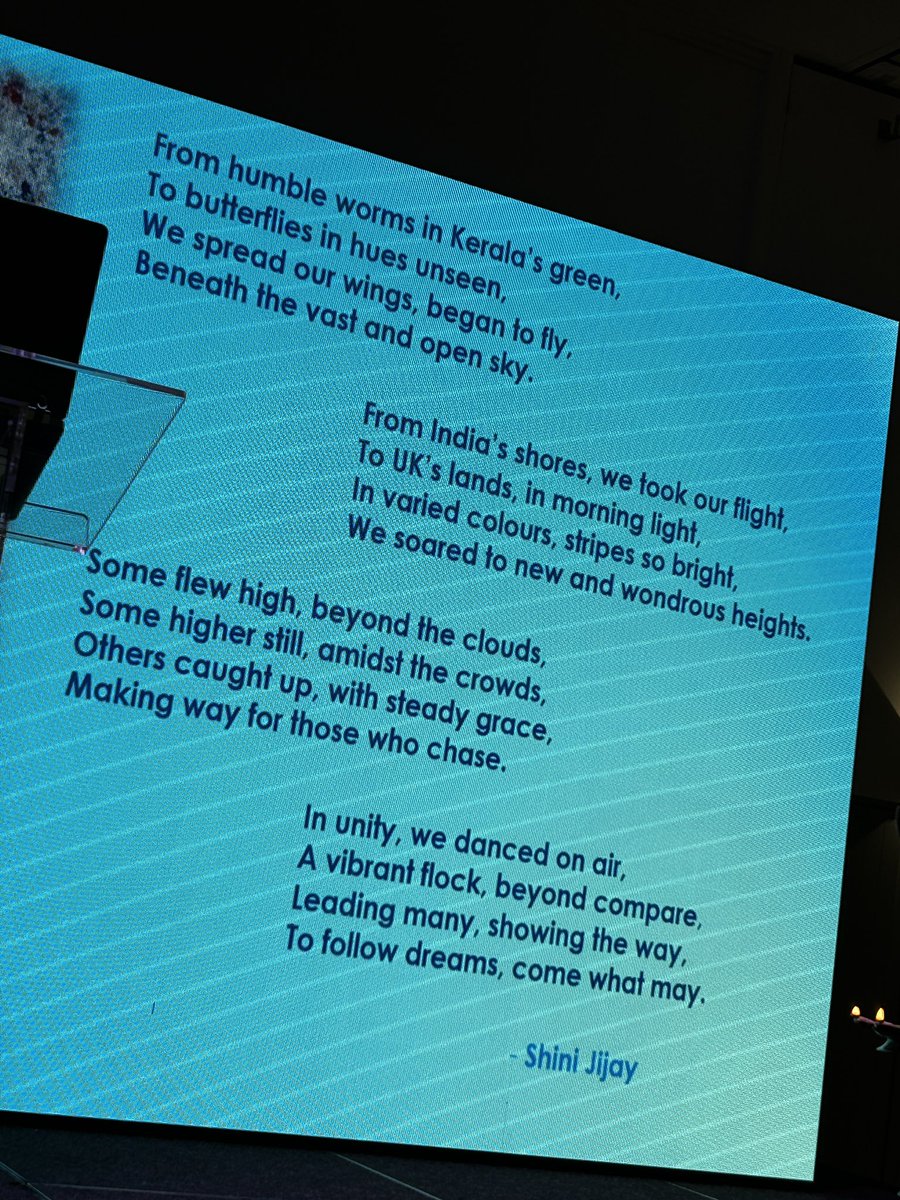 From humble worms in Kerala's green,
To butterflies in hues unseen,
We spread our wings, began to fly,
Beneath the vast and open sky.
From India's shores, we took our flight,
To UK's lands, in morning light,
In varied colours, stripes so bright,
We soared to new and wondrous heights.
Some flew high, beyond the clouds,
Some higher still, amidst the crowds,
Others caught up, with steady grace,
Making way for those who chase.
In unity, we danced on air,
A vibrant flock, beyond compare,
Leading many, showing the way,
To follow dreams, come what may.
- Shini Jijay